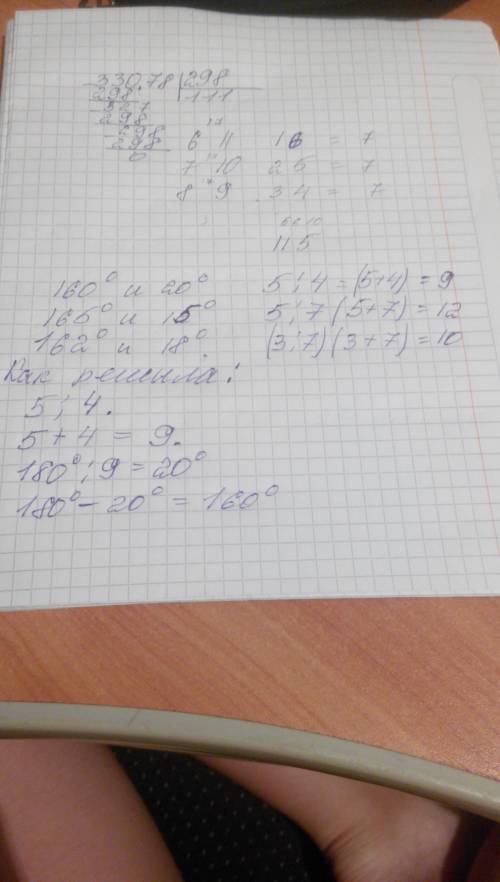 330.78 298
298 111
298
298
0
6 11 16 = 7
7 10 25 = 7
8 9 34 = 7
115
160° и 20° 5:4 = (5+4) = 9
165° и 15° 5:7 (5+7) = 12
162° и 18° (3:7) (3+7) = 10
Как решила:
5:4.
5+4 = 9.
180°:9 = 20°
180° - 20° = 160°